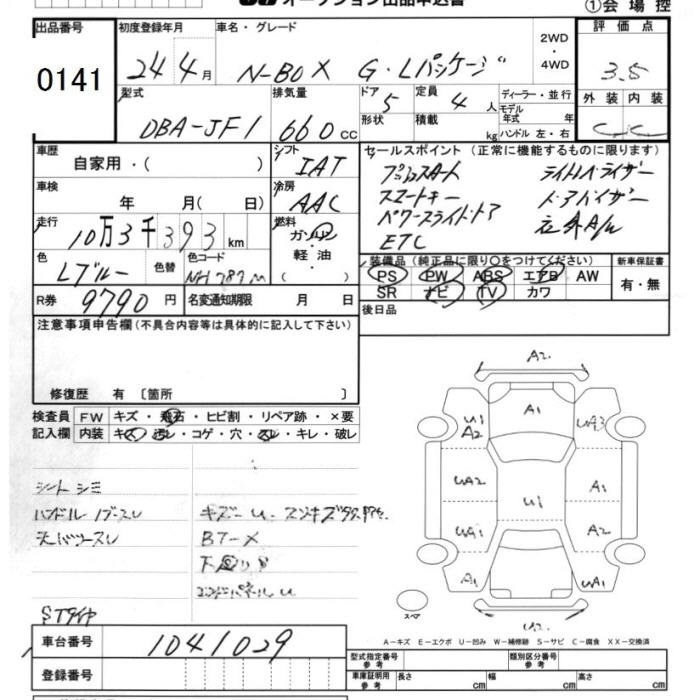 オークション出品申込書 ①会場控
出品番号 0141
初度登録年月 24 4月
車名・グレード N-BOX G・Lパッケージ
2WD・4WD
評価点 3.5
型式 DBA-JF1
排気量 660cc
ドア 5
形状
定員 4人
積載 kg
ディーラー・並行
モデル年式 年
ハンドル 左・右
外装 内装
C C
車歴 自家用・( )
シフト IAT
セールスポイント (正常に機能するものに限ります)
プッシュスタート ライトレベライザー
スマートキー ドアバイザー
パワースライドドア 社外A/W
ETC
車検 年 月(日)
冷房 AAC
走行 10万3千393km
燃料 ガソリン・軽油・( )
色 Lブルー 色替
色コード NH789M
装備品(純正品に限り○をつけてください)
PS PW ABS エアB AW
SR ナビ TV カワ
新車保証書 有・無
R券 9790円
名変通知期限 月 日
後日品
注意事項申告欄(不具合内容等は具体的に記入して下さい)
修復歴 有 〔箇所 〕
検査員記入欄 FW キズ・飛石・ヒビ割・リペア跡・×要
内装 キズ・汚れ・コゲ・穴・スレ・キレ・破レ
シートシミ
ハンドルノブスレ キズ一 U
天バリスレ BT-×
下廻りサビ
エンドパネルU
STタイヤ
A2
U1 A2 A1 UA3
UA2 U1 A1
UA1 A2
A1 UA1
U2
スペア
A-キズ E-エクボ U-凹み W-補修跡 S-サビ C-腐食 XX-交換済
車台番号 1041029
登録番号
型式指定番号 参考
類別区分番号 参考
車庫証明用 参考 長さ cm 幅 cm 高さ cm